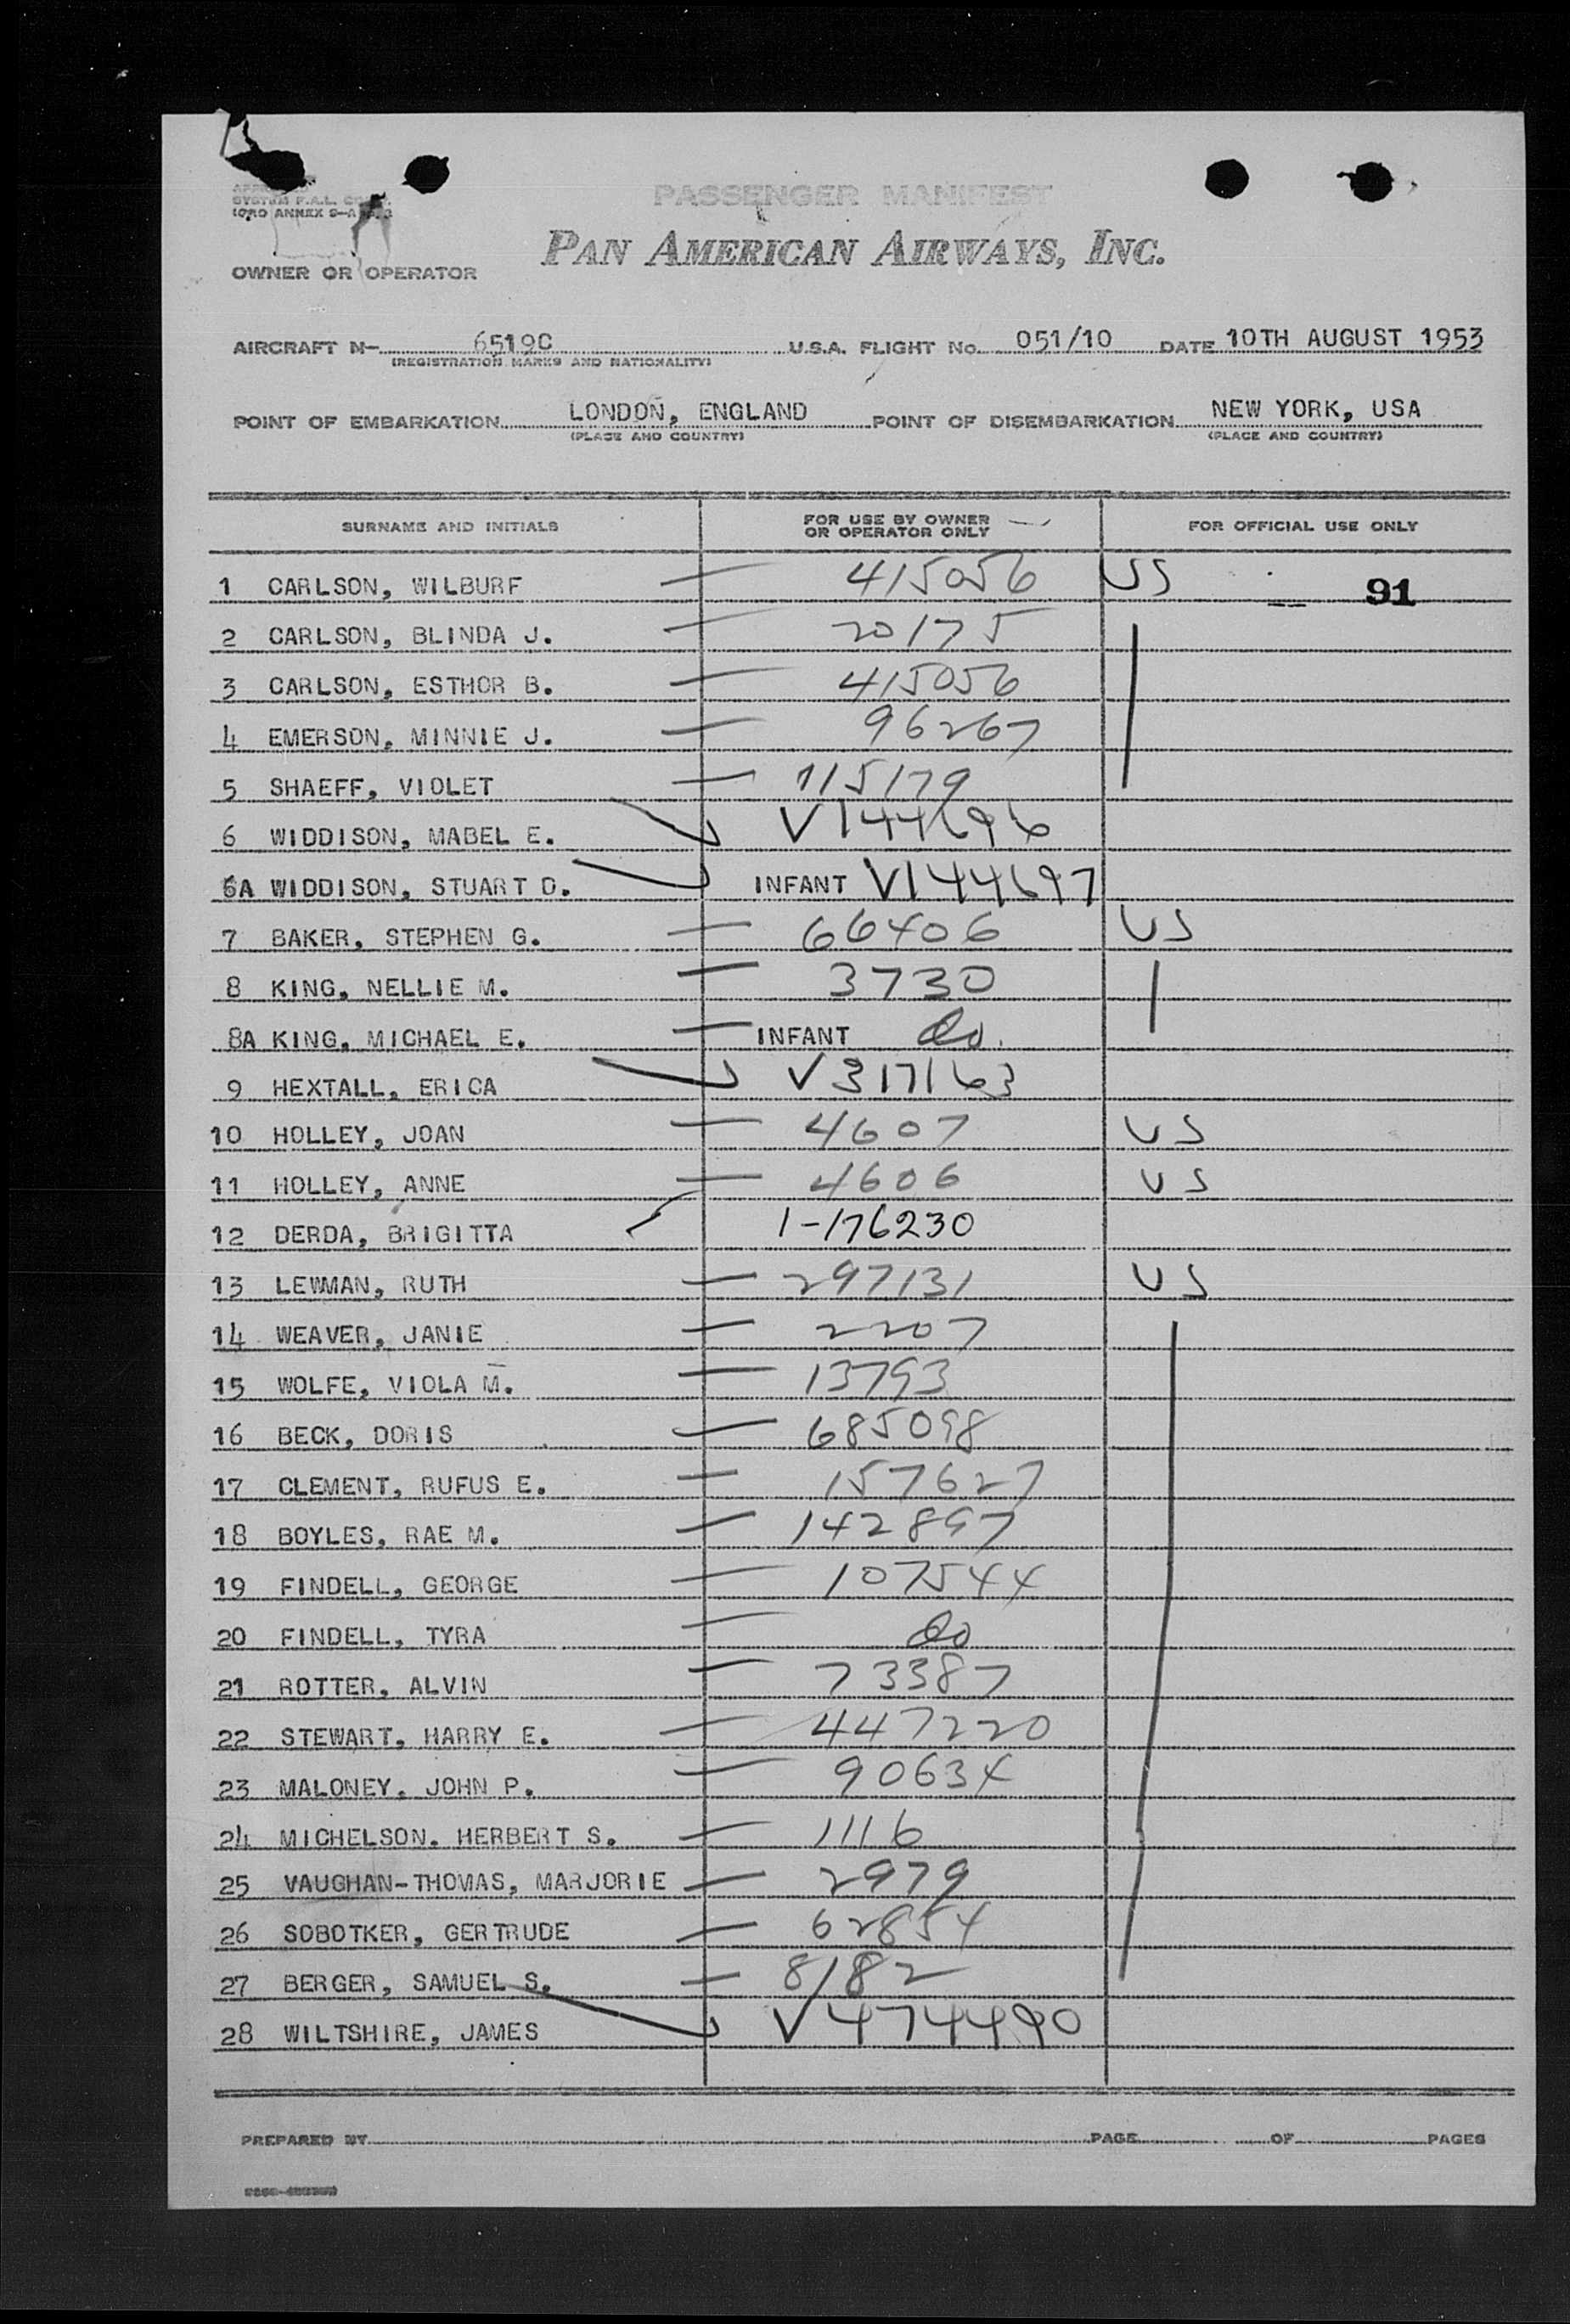 PASSENGER MANIFEST
SYSTEM F.A.L.
ICAO ANNEX 9-A
PAN AMERICAN AIRWAYS, INC.
OWNER OR OPERATOR
AIRCRAFT N- 6519C U.S.A. FLIGHT No. 051/10 DATE 10TH AUGUST 1953
(REGISTRATION MARKS AND NATIONALITY)
POINT OF EMBARKATION LONDON, ENGLAND POINT OF DISEMBARKATION NEW YORK, USA
(PLACE AND COUNTRY) (PLACE AND COUNTRY)
SURNAME AND INITIALS FOR USE BY OWNER OR OPERATOR ONLY FOR OFFICIAL USE ONLY
1 CARLSON, WILBURF — 415056 US 91
2 CARLSON, BLINDA J. — 20175
3 CARLSON, ESTHOR B. — 415056
4 EMERSON, MINNIE J. — 96267
5 SHAEFF, VIOLET — 115179
6 WIDDISON, MABEL E. V144696
6A WIDDISON, STUART D. INFANT V144697
7 BAKER, STEPHEN G. — 66406 US
8 KING, NELLIE M. — 3730
8A KING, MICHAEL E. — INFANT do.
9 HEXTALL, ERICA V317163
10 HOLLEY, JOAN — 4607 US
11 HOLLEY, ANNE — 4606 US
12 DERDA, BRIGITTA 1-176230
13 LEWMAN, RUTH — 297131 US
14 WEAVER, JANIE — 2207
15 WOLFE, VIOLA M. — 13793
16 BECK, DORIS — 685098
17 CLEMENT, RUFUS E. — 157627
18 BOYLES, RAE M. — 142897
19 FINDELL, GEORGE — 107544
20 FINDELL, TYRA — do
21 ROTTER, ALVIN — 73387
22 STEWART, HARRY E. — 447220
23 MALONEY, JOHN P. — 90634
24 MICHELSON, HERBERT S. — 1116
25 VAUGHAN-THOMAS, MARJORIE — 2979
26 SOBOTKER, GERTRUDE — 62854
27 BERGER, SAMUEL S. — 8182
28 WILTSHIRE, JAMES V474490
PREPARED BY PAGE OF PAGES